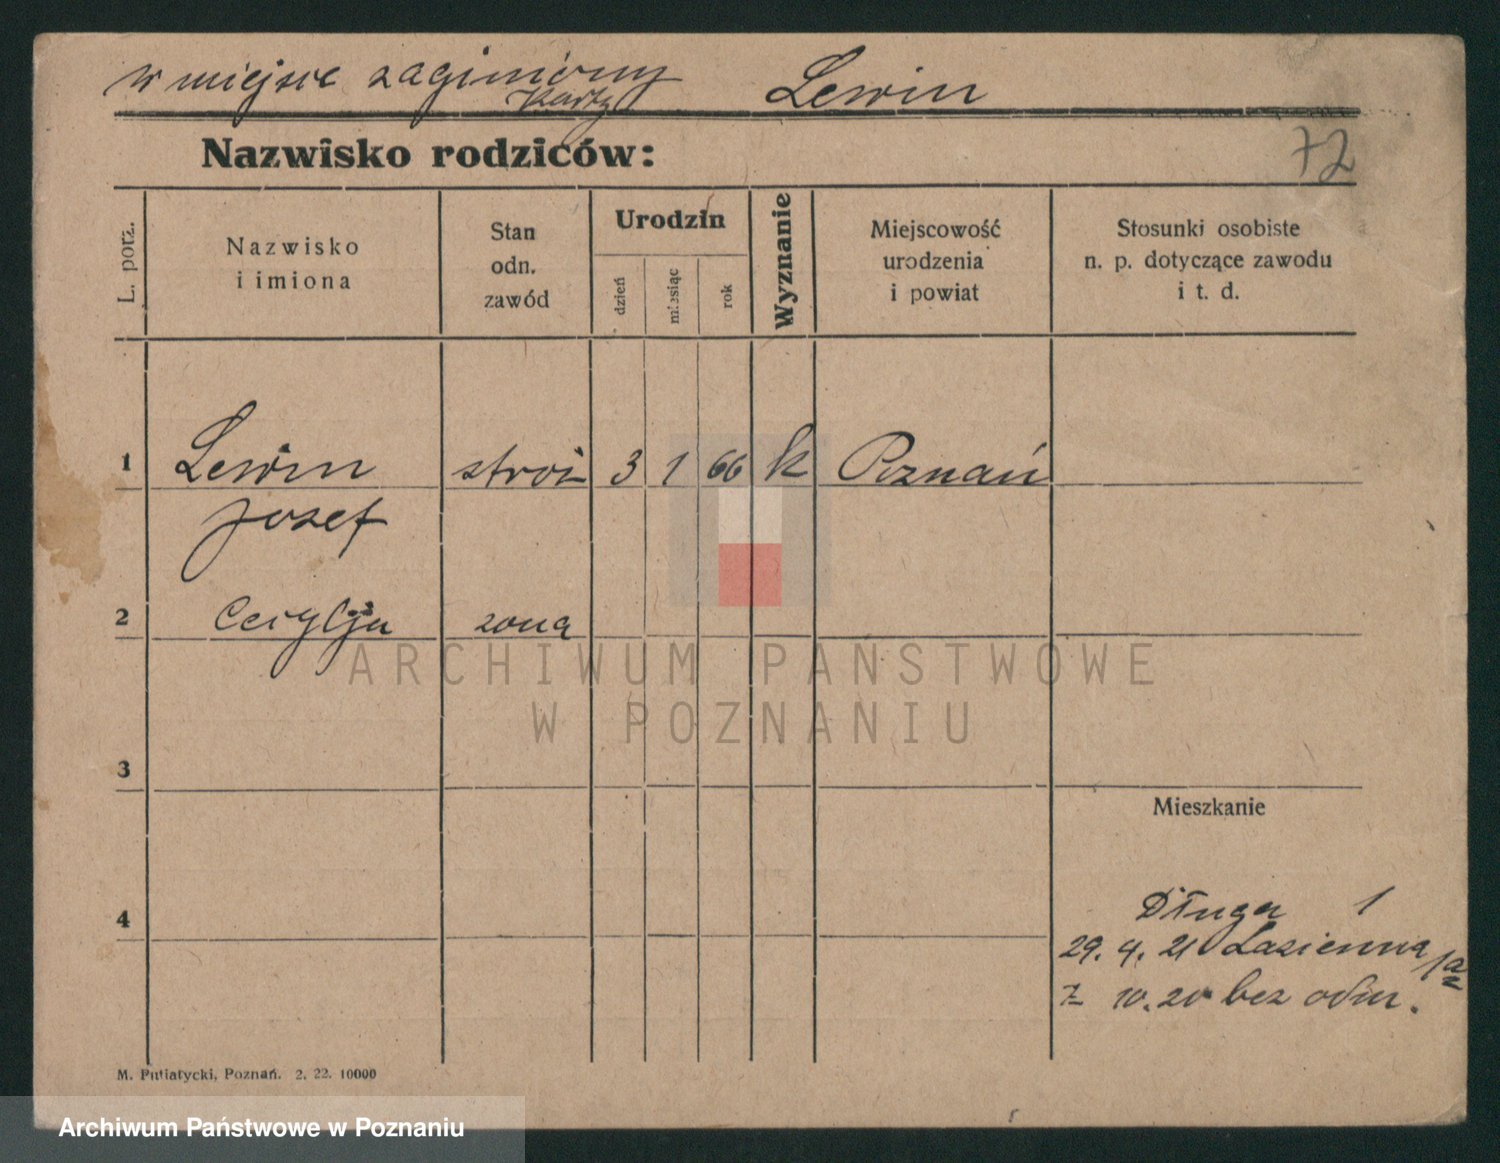 w miejsce zaginiony Lewin
Karty
Nazwisko rodziców:
72
L. porz.
Nazwisko
i imiona
Stan
odn.
zawód
Urodzin
dzień
miesiąc
rok
Wyznanie
Miejscowość
urodzenia
i powiat
Stosunki osobiste
n. p. dotyczące zawodu
i t. d.
1 Lewin stróż 3 1 66 k Poznań
Jozef
2 żona
ARCHIWUM PAŃSTWOWE
W POZNANIU
3
Mieszkanie
4
Długa 1
29. 4. 21 Łazienna 1a
7 10. 20 bez odm.
M. Putiatycki, Poznań. 2. 22. 10000
Archiwum Państwowe w Poznaniu